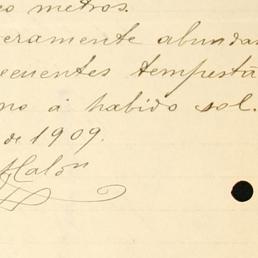 o metros.
eramente abundan
ecuentes tempestá
no á habido sol.
de 1909.